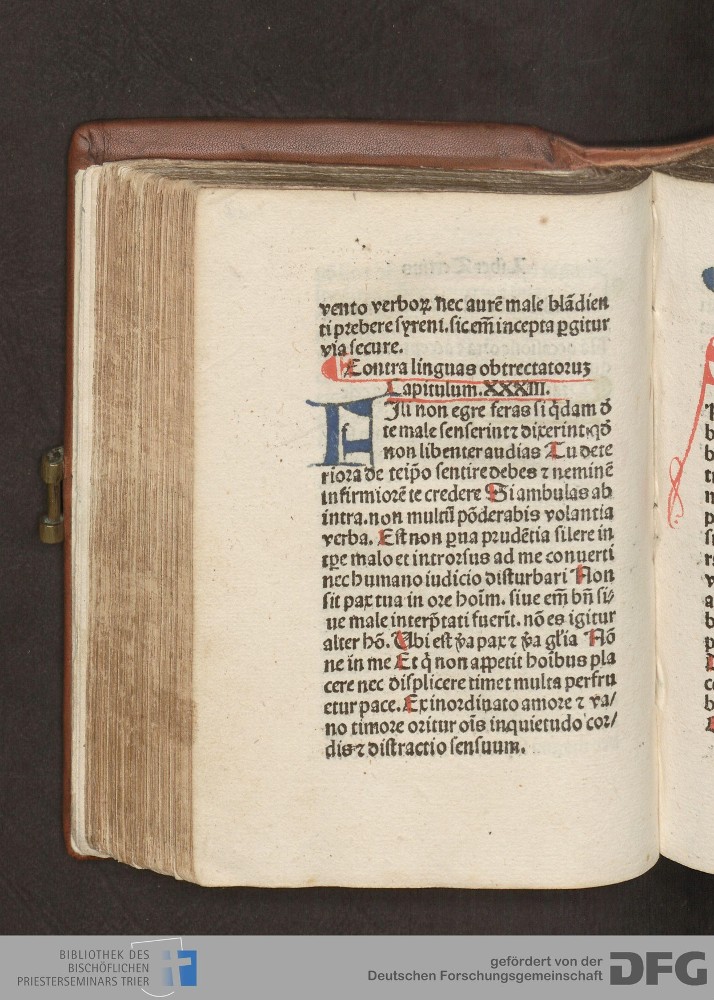 vento verboꝝ nec aurē male blādien
ti prebere syreni. sic em̄ incepta ꝑgitur
via secure.
Contra linguas obtrectatoruꝫ
Capitulum. XXXIII.
FIli non egre feras si q̇dam ð
te male senserint ⁊ dixerint qð
non libenter audias Tu dete
riora de teip̄o sentire debes ⁊ neminē
infirmiorē te credere Si ambulas ab
intra. non multū pōderabis volantia
verba. Est non ꝑua prudētia silere in
tꝑe malo et introrsus ad me conuerti
nec humano iudicio disturbari Non
sit pax tua in ore hoīm. siue em̄ bn̄ si/
ue male interp̄tati fuerīt. nō es igitur
alter hō. Ubi est v̄a pax ⁊ v̄a gl̄ia Nō
ne in me Et q̇ non appetit hoībus pla
cere nec displicere timet multa perfru
etur pace. Ex inordinato amore ⁊ va/
no timore oritur oīs inquietudo cor/
dis ⁊ distractio sensuum.
BIBLIOTHEK DES
BISCHÖFLICHEN
PRIESTERSEMINARS TRIER
gefördert von der
Deutschen Forschungsgemeinschaft
DFG